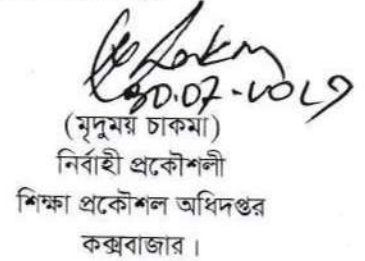 30.07-2017
(মৃদুময় চাকমা)
নির্বাহী প্রকৌশলী
শিক্ষা প্রকৌশল অধিদপ্তর
কক্সবাজার ।